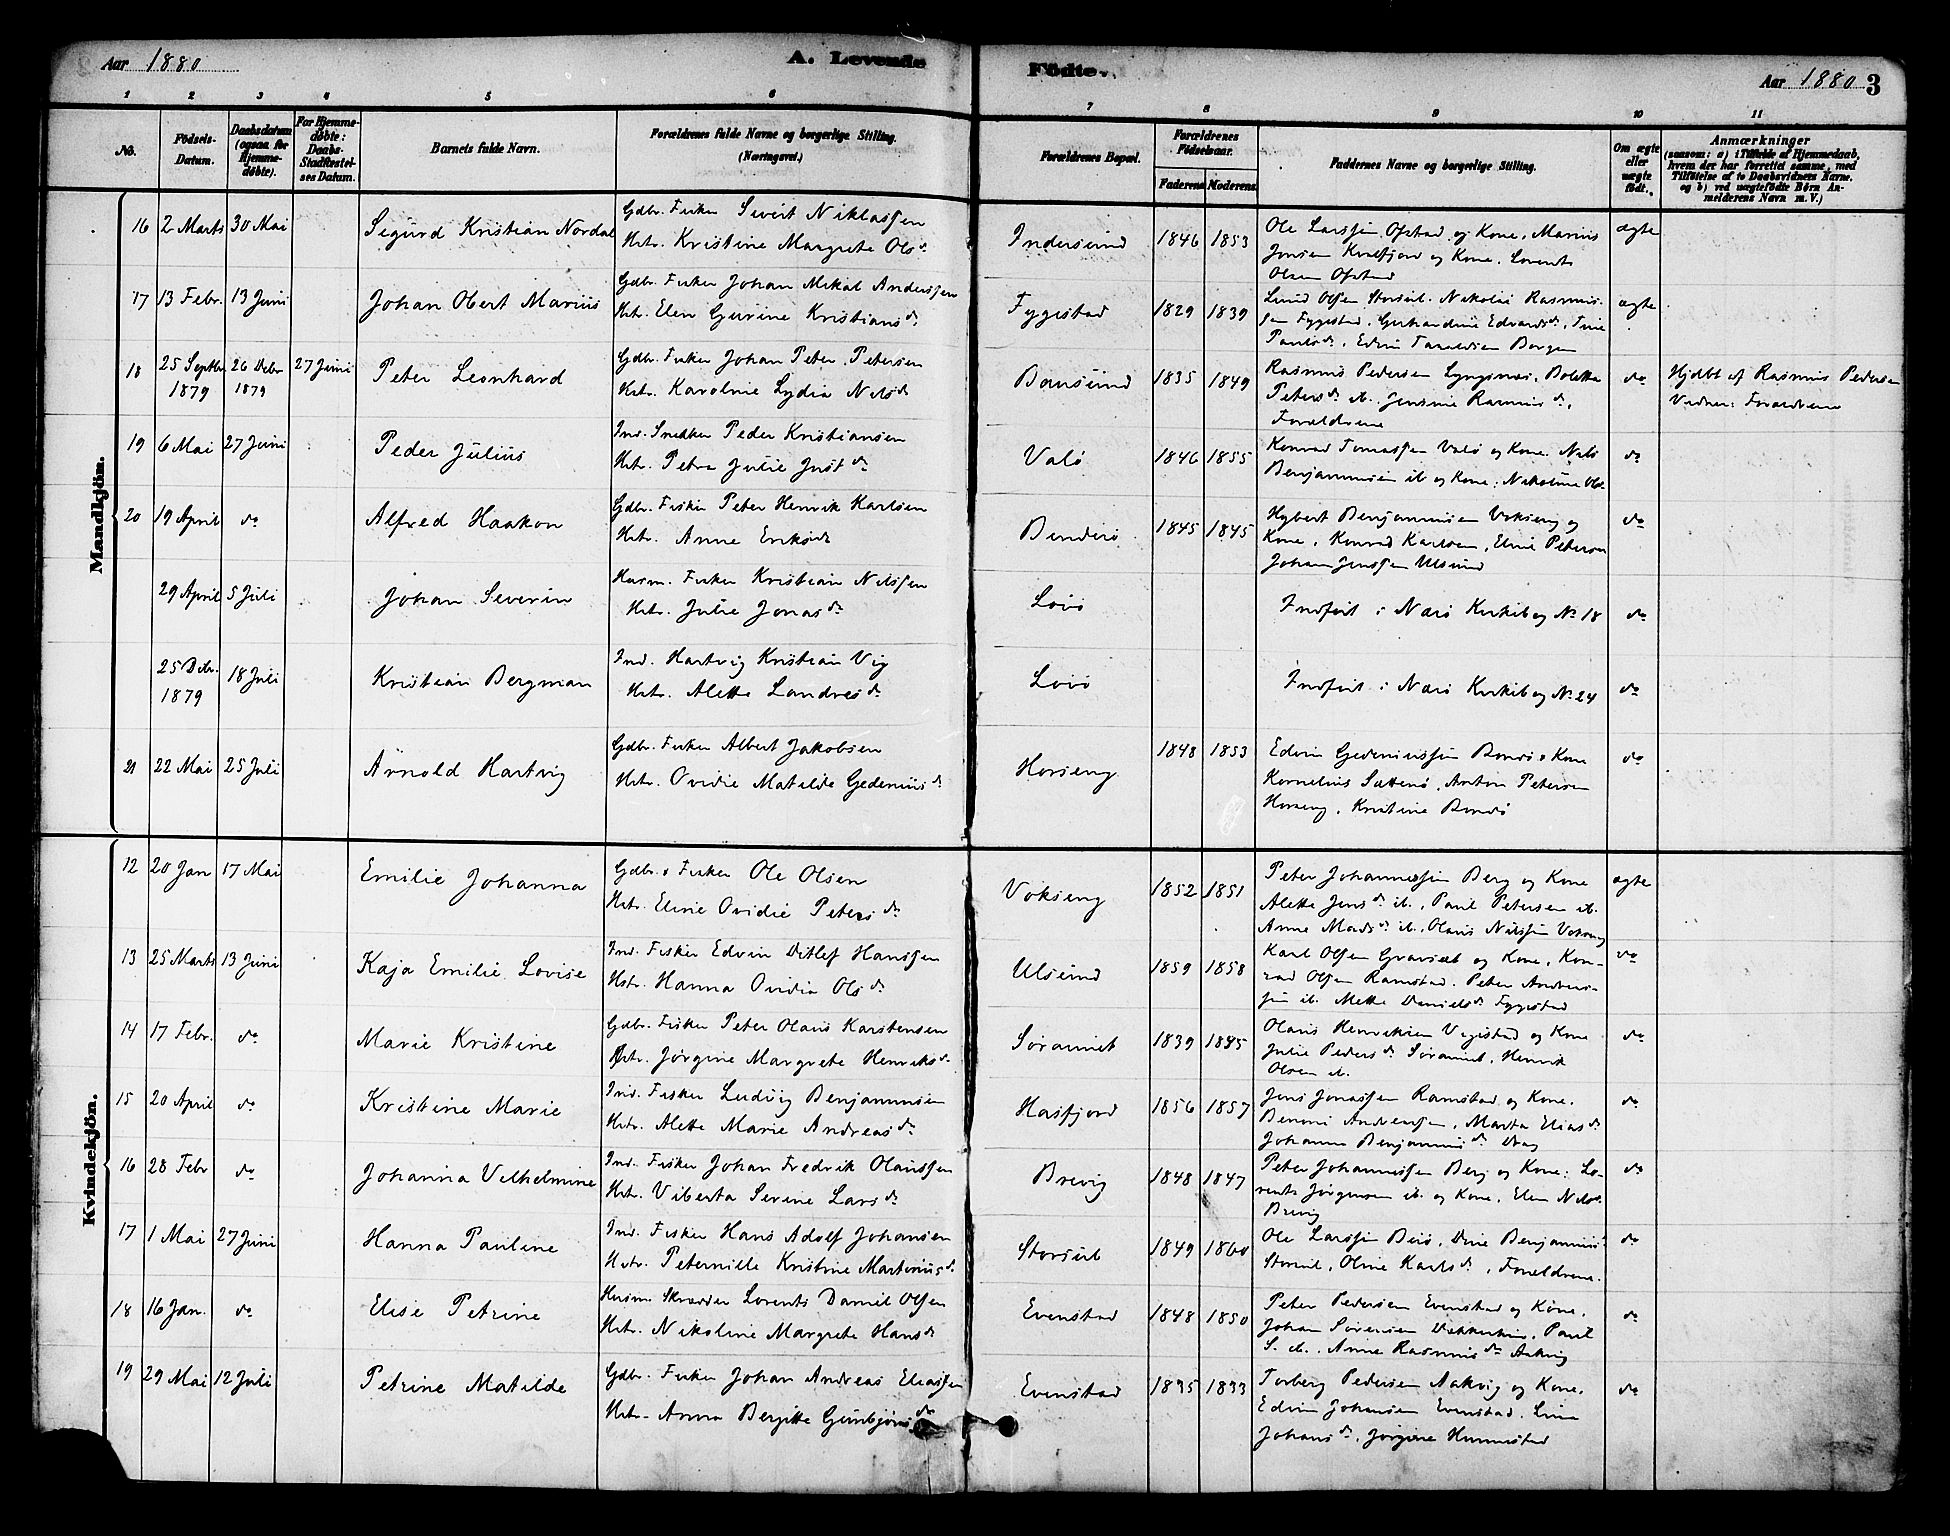 Aar 1880
A. Levende Fødte.
Aar 1880 3
1 2 3 4 5 6 7 8 9 10 11
No.
Fødsels-Datum.
Daabsdatum (ogsaa for Hjemmedøbte).
For Hjemmedøbte: Daabs-Stadfæstelses Datum.
Barnets fulde Navn.
Forældrenes fulde Navne og borgerlige Stilling. (Næringsvei.)
Forældrenes Bopæl.
Forældrenes Fødselsaar.
Faderens Moderens
Faddernes Navne og borgerlige Stilling.
Om ægte eller uægte født.
Anmærkninger
(saasom: a) i Tilfælde af Hjemmedaab,
hvem der har forrettet samme, med
Tilføielse af to Daabsvidners Navne,
og b) ved uægtefødte Børn An-
melderens Navn m. V.)
Mandkjön.
16 2 Marts 30 Mai Sigurd Kristian Nordal Gdbr. Fisker Sivert Niklassen
Hstr. Kristine Margrete Olsdr Indersund 1846 1853 Ole Larssen Ofstad og Kone, Marius
Jensen Kvalfjord og Kone. Lorents
Olsen Ofstad ægte
17 13 Febr. 13 Juni Johan Obert Marius Gdbr. Fisker Johan Mikal Anderssen
Hstr. Elen Gurine Kristiansdr. Fygistad 1829 1839 Olsen Storsul. Nikolai Rasmus-
sen Fygistad, Edvardsdr, Trine
Paulsdr, Edvin Borgen ægte
18 25 Septbr 1879 26 Debr 1879 27 Juni Peter Leonhard Gdbr. Fisker Johan Peter Petersen
Hstr. Karoline Lydia Nilsdr Bausund 1835 1849 Rasmus Pedersen Lyngsnæs, Bolette
Petersdr ib. Jensine Rasmusdr,
Forældrene do Hjdbt af Rasmus Pedersen
Vidner: Forældrene
19 6 Mai 27 Juni Peder Julius Ind. Snekker Peder Kristiansen
Hstr. Petra Julie Justdr Valø 1846 1855 Konrad Tomassen Valø og Kone. Nils
Benjaminsen ib og Kone; Nikoline Olsdr do
20 19 April do Alfred Haakon Gdbr. Fisker Peter Henrik Karlsen
Hstr. Anne Eriksdr Benderø 1845 1845 Hybert Benjaminsen Vokseng og
Kone, Konrad Karlsen, Eline Petersen
Johan Jenssen Ulsund do
29 April 5 Juli Johan Severin Husm. Fisker Kristian Nilssen
Hstr. Julie Jonasdr Lovø Indført i Nærø Kirkebog No 18 do
25 Debr. 1879 18 Juli Kristian Bergman Ind. Hartvig Kristian Vig
Hstr. Alette Landresdr Lovø Indført i Nærø Kirkebog No 24 do
21 22 Mai 25 Juli Arnold Hartvig Gdbr. Fisker Albert Jakobsen
Hstr. Ovidie Matilde Gedeniusdr Horseng 1848 1853 Edvin Gedeniussen Bondø & Kone
Kornelius Sætterø, Anton Petersen
Horseng, Kristine Bondø do
Kvindekjön.
12 20 Jan 17 Mai Emilie Johanna Gdbr. & Fisker Ole Olsen
Hstr. Eline Ovidie Petersdr Vokseng 1852 1851 Peter Johannessen Berg og Kone
Alette Jensdr ib., Paul Petersen ib.
Anne Madsdr ib. Olaus Nilssen Vokseng ægte
13 25 Marts 13 Juni Kaja Emilie Lovise Ind. Fisker Edvin Ditlef Hanssen
Hstr. Hanna Ovidia Olsdr Ulsund 1859 1858 Karl Olsen Gravset og Kone, Kon-
rad Olsen Ramstad. Peter Anders-
sen ib. Mette Danielsdr Fygistad do
14 17 Febr. do Marie Kristine Gdbr. Fisker Peter Olaus Karstensen
Hstr. Jørgine Margrete Henriksdr Søraunet 1839 1845 Olaus Henriksen Vegistad og Kone
Julie Pedersdr Søraunet, Henrik
Olsen ib. do
15 20 April do Kristine Marie Ind. Fisker Ludvig Benjaminsen
Hstr. Alette Marie Andreasdr Hasfjord 1856 1857 Jens Jonassen Ramstad og Kone.
Benoni Andreassen, Marta Eliasdr
Johanna Benjaminsdr do
16 28 Febr do Johanna Vilhelmine Ind. Fisker Johan Fredrik Olaussen
Hstr. Viberta Serine Larsdr Brevig 1848 1847 Peter Johannessen Berg og Kone: Lo-
rents Jørgensen ib. og Kone, Elen Nilsdr
Brevig do
17 1 Mai 27 Juni Hanna Pauline Ind. Fisker Hans Adolf Johansen
Hstr. Peternille Kristine Martinusdr Storsul 1849 1860 Ole Larssen Berø, Dine Benjaminsdr
Storsul, Oline Karlsdr, Forældrene. do
18 16 Jan. do Elise Petrine Husm. Skrædder Lorents Daniel Olsen
Hstr. Nikoline Margrete Hansdr Evenstad 1848 1850 Peter Pedersen Evenstad og Kone.
Johan Sørensen Paul
S. ib., Anne Rasmusdr Aakvig do
19 29 Mai 12 Juli Petrine Matilde Gdbr. Fisker Johan Andreas Eliassen
Hstr. Anna Bergitte Gunbjørnsdr Evenstad 1835 1833 Torberg Pedersen Aakvig og Kone.
Edvin Johansen Evenstad. Line
Johansdr, Jørgine Hummestad do